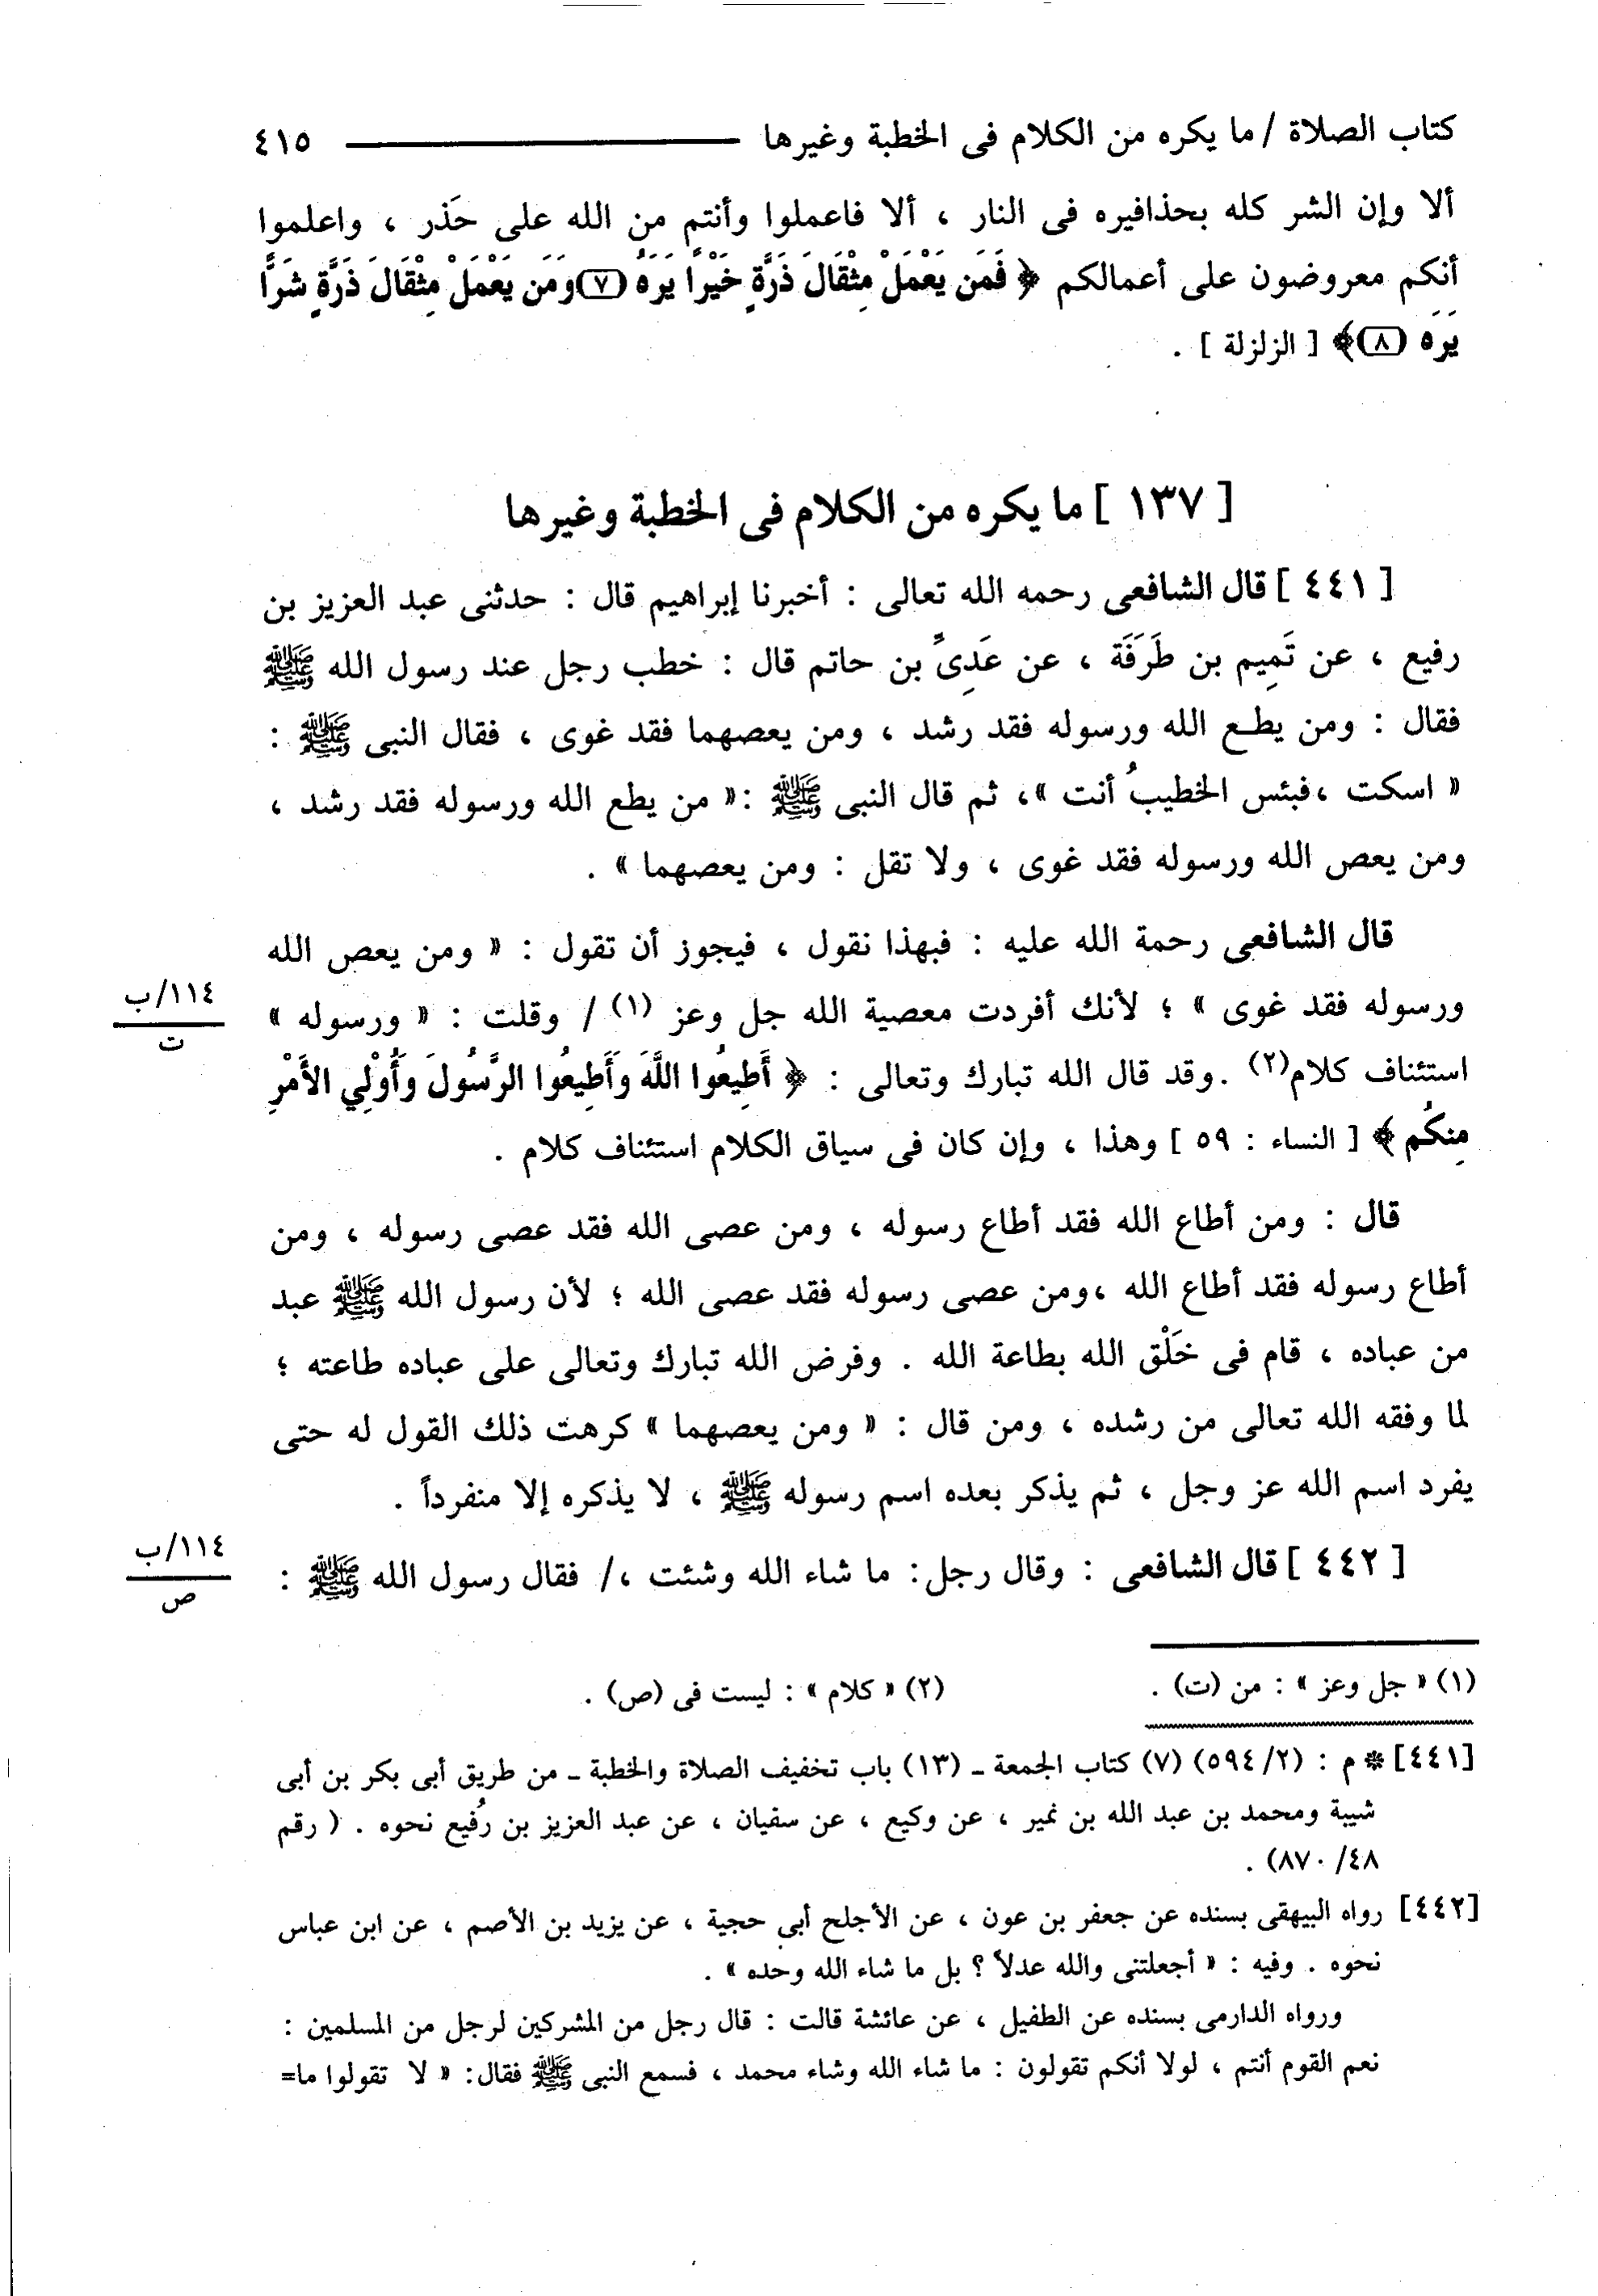 كتاب الصلاة / ما يكره من الكلام فى الخطبة وغيرها ـــــــــ ٤١٥
ألا وإن الشر كله بحذافيره فى النار ، ألا فاعملوا وأنتم من الله على حَذر ، واعلموا
أنكم معروضون على أعمالكم ﴿ فَمَن يَعْمَلْ مِثْقَالَ ذَرَّةٍ خَيْرًا يَرَهُ (٧) وَمَن يَعْمَلْ مِثْقَالَ ذَرَّةٍ شَرًّا
يَرَه (٨)﴾ [ الزلزلة ] .
[ ١٣٧ ] ما يكره من الكلام فى الخطبة وغيرها
[ ٤٤١ ] قال الشافعى رحمه الله تعالى : أخبرنا إبراهيم قال : حدثنى عبد العزيز بن
رفيع ، عن تَمِيم بن طَرَفَة ، عن عَدِىِّ بن حاتم قال : خطب رجل عند رسول الله ﷺ
فقال : ومن يطع الله ورسوله فقد رشد ، ومن يعصهما فقد غوى ، فقال النبى ﷺ :
« اسكت ،فبئس الخطيبُ أنت »، ثم قال النبى ﷺ :« من يطع الله ورسوله فقد رشد ،
ومن يعص الله ورسوله فقد غوى ، ولا تقل : ومن يعصهما » .
قال الشافعى رحمة الله عليه : فبهذا نقول ، فيجوز أن تقول : « ومن يعص الله
ورسوله فقد غوى » ؛ لأنك أفردت معصية الله جل وعز (١) / وقلت : « ورسوله »
١١٤/ب
ت
استئناف كلام(٢) .وقد قال الله تبارك وتعالى : ﴿ أَطِيعُوا اللَّهَ وَأَطِيعُوا الرَّسُولَ وَأُوْلِي الأَمْرِ
مِنكُم ﴾ [ النساء : ٥٩ ] وهذا ، وإن كان فى سياق الكلام استئناف كلام .
قال : ومن أطاع الله فقد أطاع رسوله ، ومن عصى الله فقد عصى رسوله ، ومن
أطاع رسوله فقد أطاع الله ،ومن عصى رسوله فقد عصى الله ؛ لأن رسول الله ﷺ عبد
من عباده ، قام فى خَلْق الله بطاعة الله . وفرض الله تبارك وتعالى على عباده طاعته ؛
لما وفقه الله تعالى من رشده ، ومن قال : « ومن يعصهما » كرهت ذلك القول له حتى
يفرد اسم الله عز وجل ، ثم يذكر بعده اسم رسوله ﷺ ، لا يذكره إلا منفرداً .
[ ٤٤٢ ] قال الشافعى : وقال رجل: ما شاء الله وشئت ،/ فقال رسول الله ﷺ :
١١٤/ب
ص
(١) « جل وعز » : من (ت) . (٢) « كلام » : ليست فى (ص) .
[٤٤١] * م : (٢/ ٥٩٤) (٧) كتاب الجمعة ـ (١٣) باب تخفيف الصلاة والخطبة ـ من طريق أبى بكر بن أبى
شيبة ومحمد بن عبد الله بن نمير ، عن وكيع ، عن سفيان ، عن عبد العزيز بن رُفيع نحوه . ( رقم
٤٨/ ٨٧٠) .
[٤٤٢] رواه البيهقى بسنده عن جعفر بن عون ، عن الأجلح أبى حجية ، عن يزيد بن الأصم ، عن ابن عباس
نحوه . وفيه : « أجعلتنى والله عدلاً ؟ بل ما شاء الله وحده » .
ورواه الدارمى بسنده عن الطفيل ، عن عائشة قالت : قال رجل من المشركين لرجل من المسلمين :
نعم القوم أنتم ، لولا أنكم تقولون : ما شاء الله وشاء محمد ، فسمع النبى ﷺ فقال: « لا تقولوا ما=